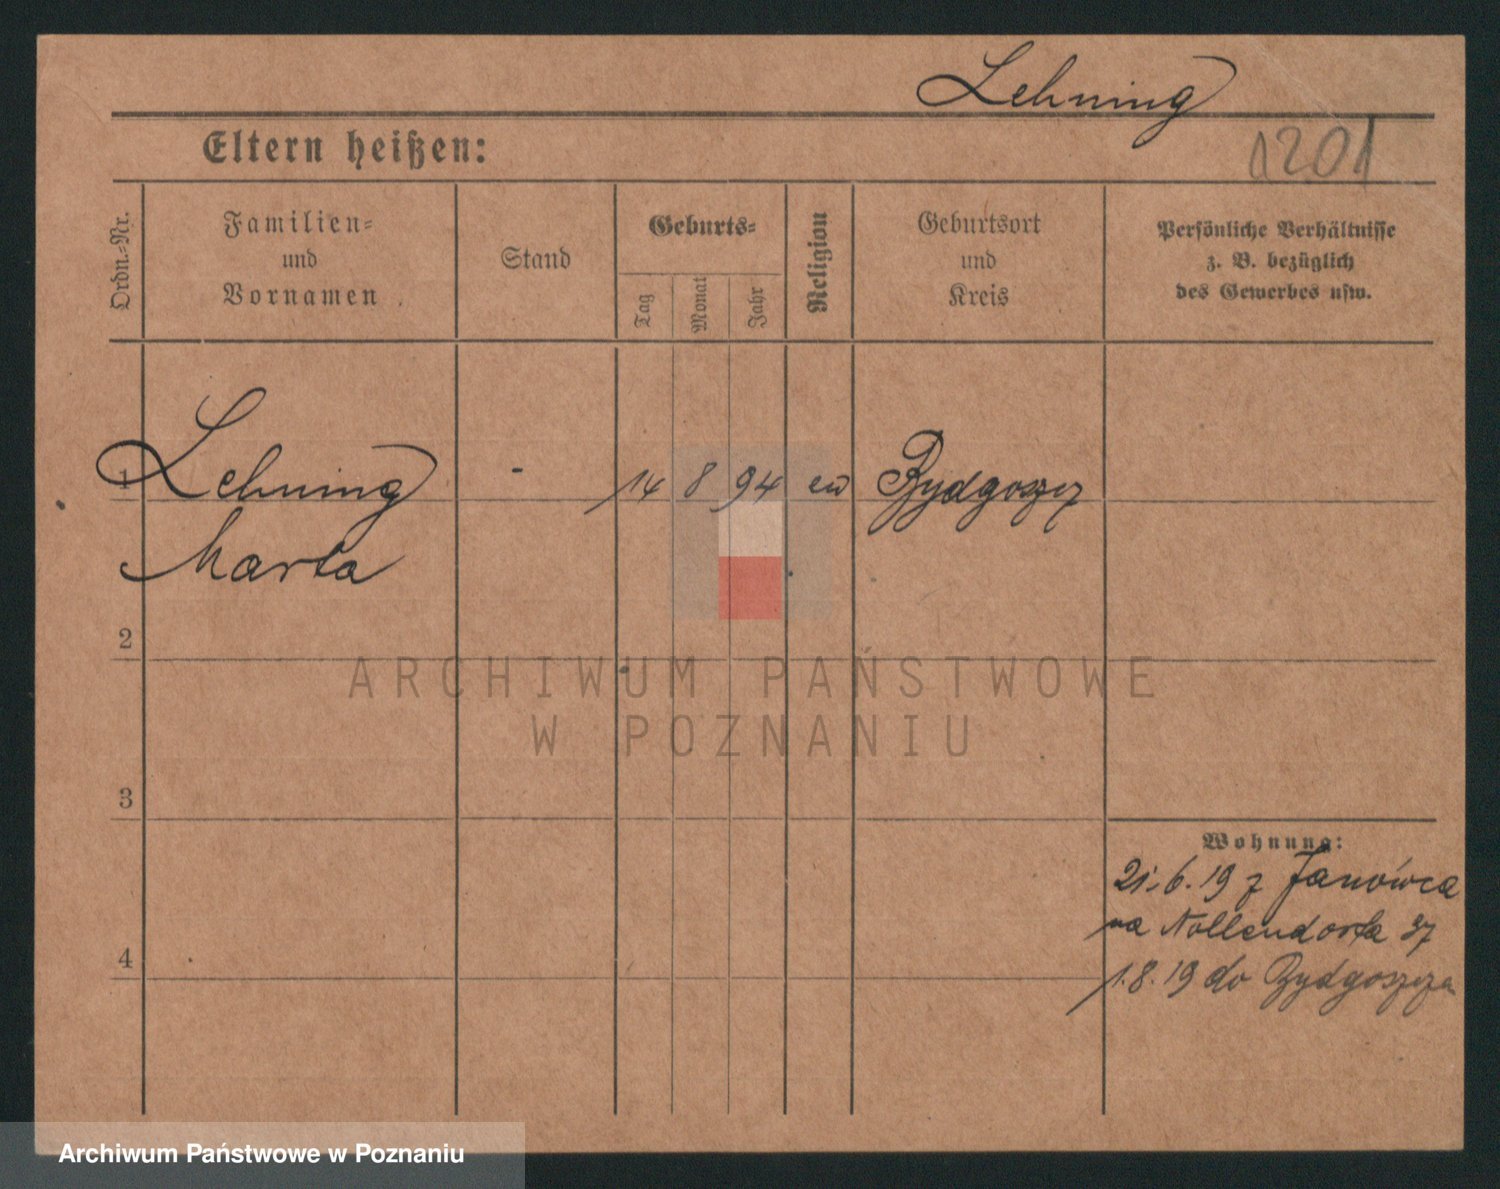 Lehning
Eltern heißen:
1201
Ordn.-Nr.
Familien-
und
Vornamen
Stand
Geburts-
Tag
Monat
Jahr
Religion
Geburtsort
und
Kreis
Persönliche Verhältnisse
z. B. bezüglich
des Gewerbes usw.
1 Lehning - 14 8 94 ew Bydgoszcz
Marta
2
ARCHIWUM PAŃSTWOWE
W POZNANIU
3
Wohnung:
21.6.19 z Janówca
na Nollendorfa 37
4
1.8.19 do Bydgoszcza
Archiwum Państwowe w Poznaniu